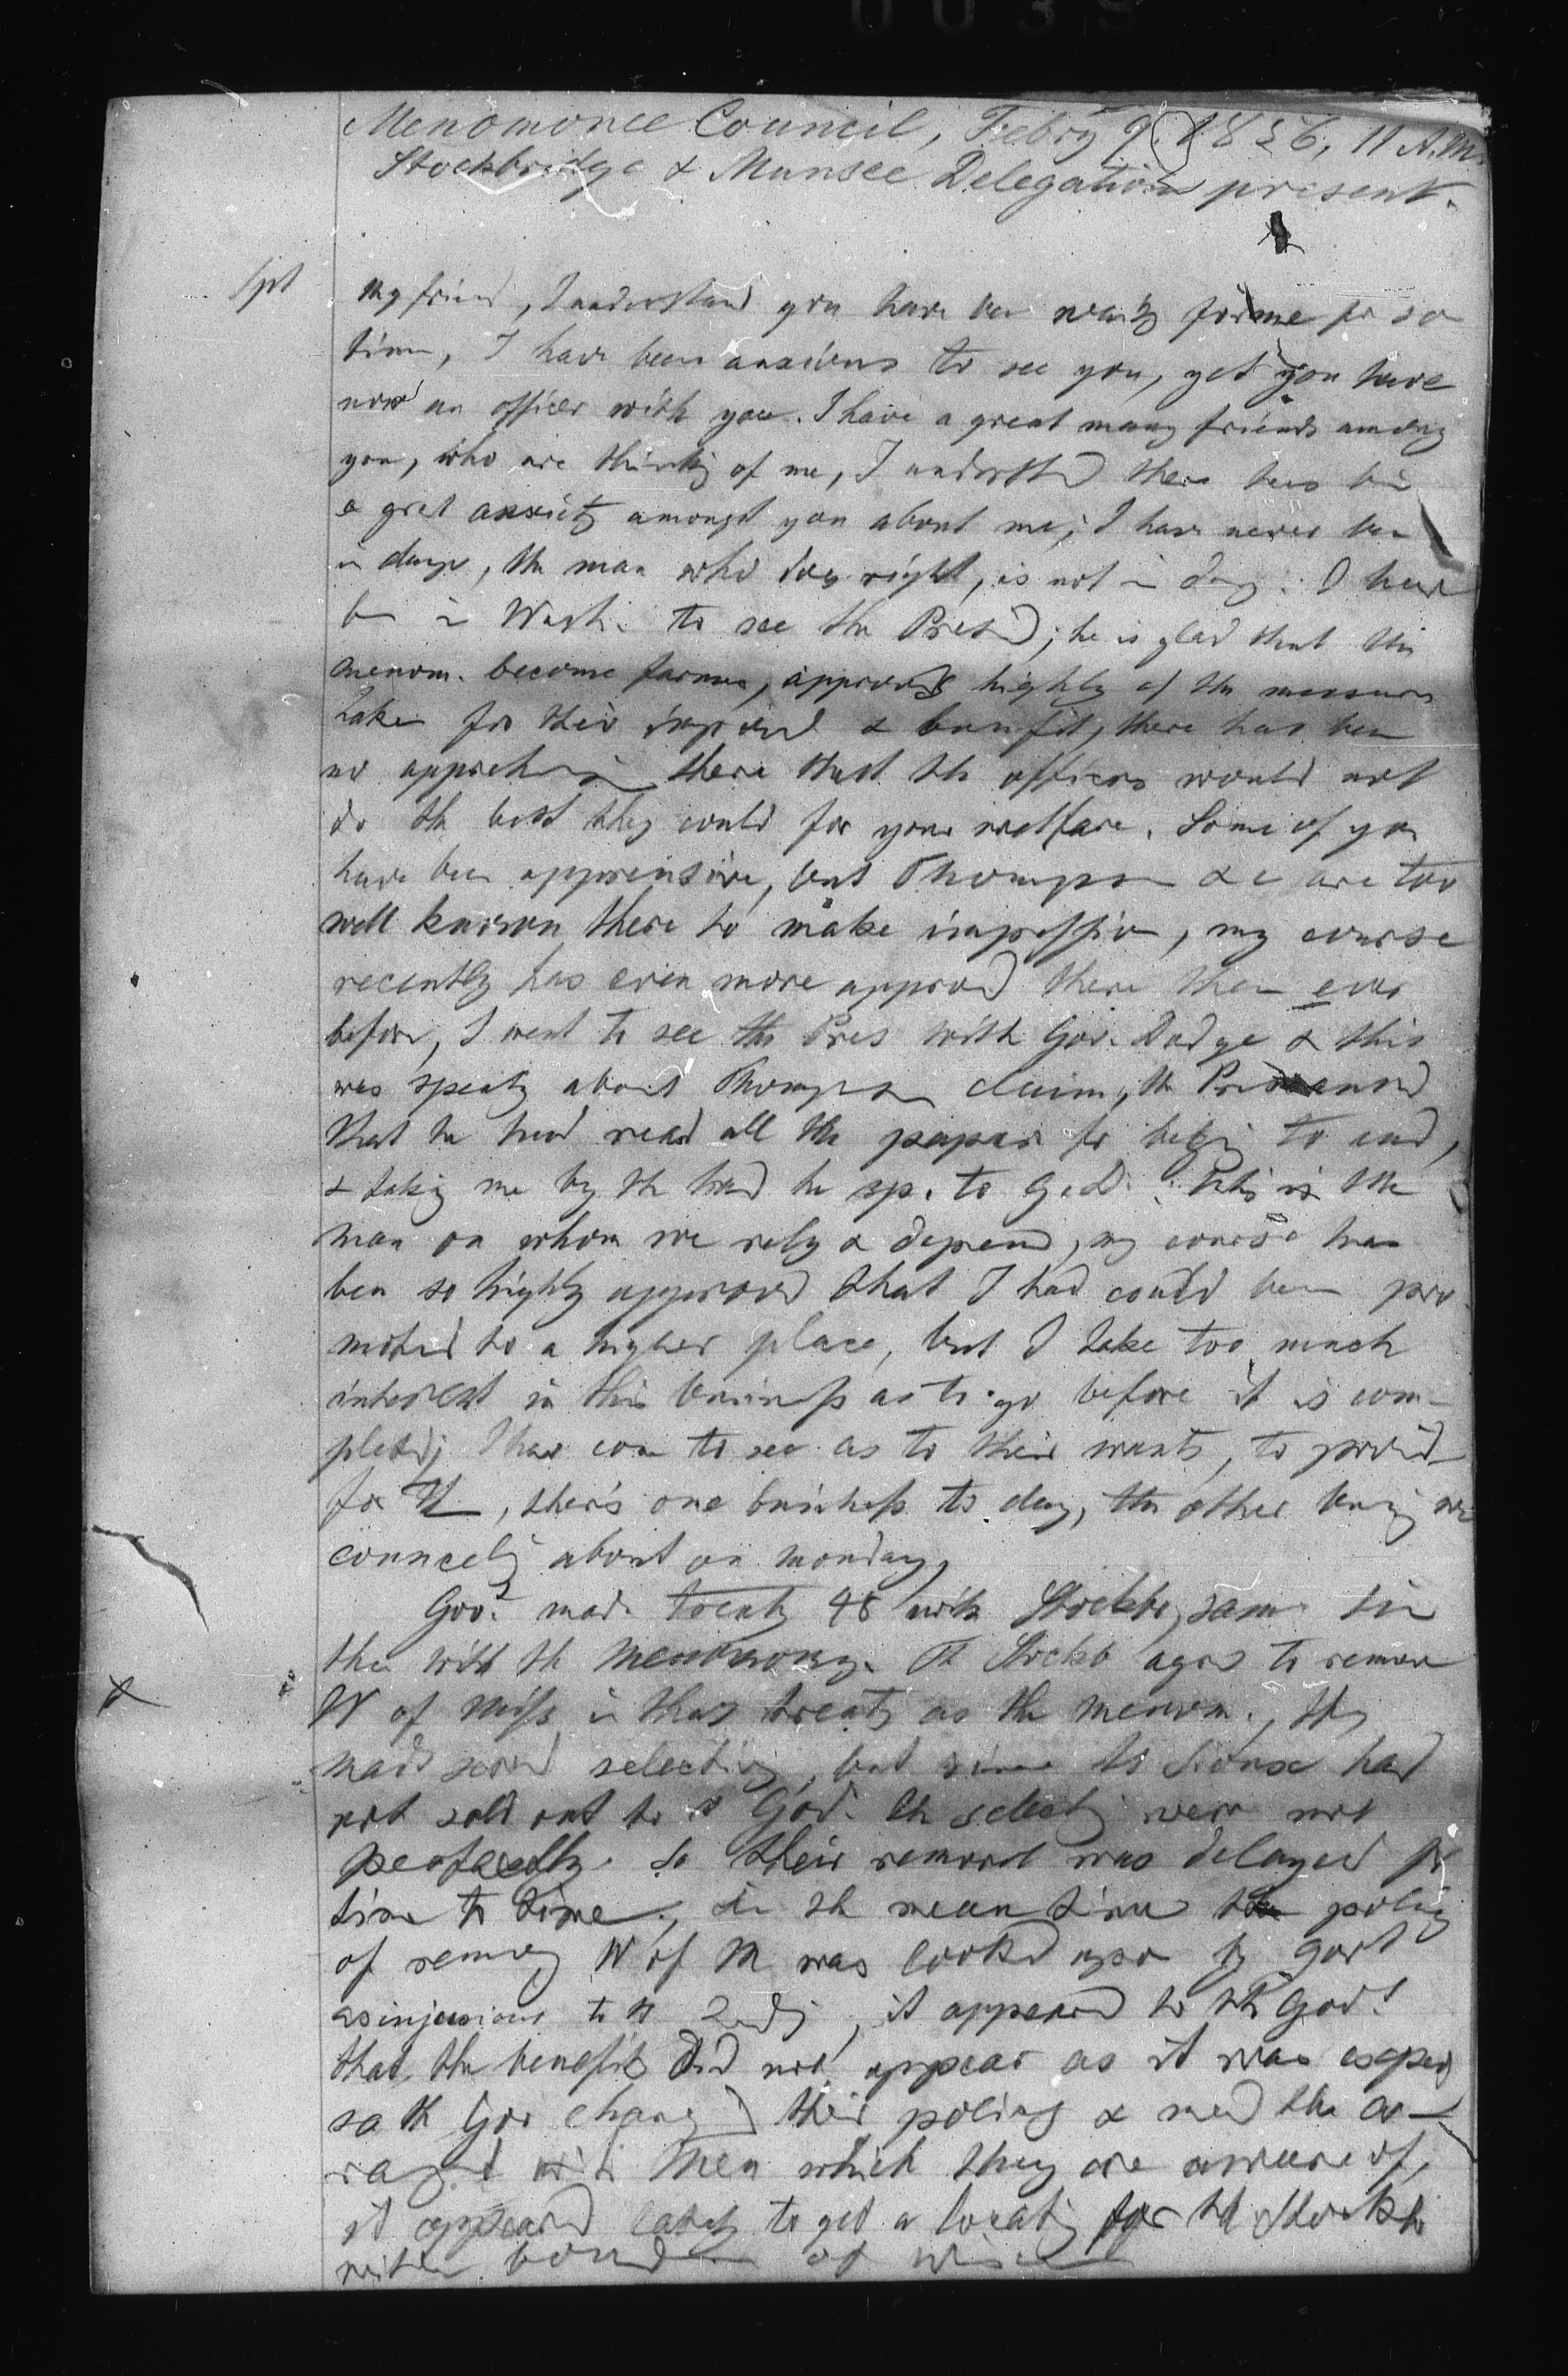 Menomonee Council, Febry 9. 1856, 11 A.M.
Stockbridge & Munsee Delegation present.
Spt
My friend, I understand you have been for me for so
time, I have been anxious to see you, yet you have
now an officer with you. I have a great many friends among
you, who are thinkg of me, I understd there has be
a gret anxiety amongst you about me; I have never be
in dangr, the man who does right, is not in dang. I have
be in Wash. to see the Presd; he is glad that the
Menom. become farmers, approves highly of the measures
taken for their & benefit, there has been
no apprehension there that the officers would not
do the best they could for your welfare. Some of you
have been apprensive, but Thompson &c are too
well known there to make impression, my course
recently has even more approvd there than ever
before, I went to see the Pres with Gov. Dodge & this
was speakg about Thompson claim, the Pres answd
that he had read all the papers fr begin to end,
& takig me by the hand he sp. to G. D. : this is the
man on whom we rely & depend, my course has
been so highly approvd that I had could been pro
moted to a higher place, but I take too much
interest in this business as to go before it is com-
pleted; I have come to see as to their wants, to provid
for th, there's one business to day, the other being we
councelg about on monday,
Govt made treaty 48 with Stockbr, same tim
the with th Menomony. Th Stockb agred to remove
x
W of Miss in that treaty as the Menom., they
made sevrl selecting, but since ts Sioux had
not sold out to Gov. th selectg were not
perfectly. So their removal was delayed fr
time to time, in th mean time the policy
of remvg W of M was lookd upon by govt
as injurious to th Inds, it appeard to th Govt
that the benefits did not appear as it was expd
so th Gov changd their policy & med the ar-
ragmt with Men which they are aware of,
it appeard to get a locatig for th Stockb
within bound of Wisc